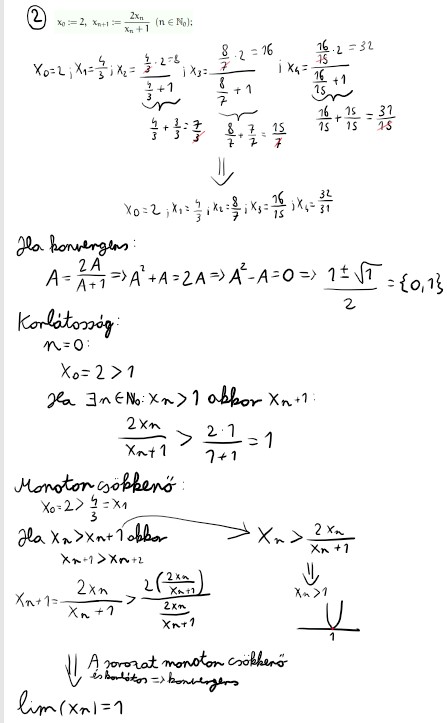 ② x₀ := 2, xₙ₊₁ := 2xₙ/(xₙ + 1) (n ∈ ℕ₀);
x₀=2 ; x₁=4/3 ; x₂ = (4/3 · 2=8)/(4/3 + 1) ; x₃ = (8/7 · 2 = 16)/(8/7 + 1) ; x₄ = (16/15 · 2 = 32)/(16/15 + 1)
4/3 + 3/3 = 7/3 8/7 + 7/7 = 15/7 16/15 + 15/15 = 31/15
⇓
x₀=2 ; x₁=4/3 ; x₂=8/7 ; x₃=16/15 ; x₄=32/31
Ha konvergens:
A = 2A/(A+1) ⇒ A²+A=2A ⇒ A²-A=0 ⇒ (1±√1)/2 = {0,1}
Korlátosság:
n=0:
x₀=2>1
Ha ∃n∈ℕ₀: xₙ>1 akkor xₙ₊₁:
2xₙ/(xₙ+1) > (2·1)/(1+1) = 1
Monoton csökkenő:
x₀=2 > 4/3 = x₁
Ha xₙ>xₙ₊₁ akkor → xₙ > 2xₙ/(xₙ+1)
xₙ₊₁>xₙ₊₂
⇓
xₙ>1
xₙ₊₁ = 2xₙ/(xₙ+1) > 2(2xₙ/(xₙ+1))/(2xₙ/(xₙ+1))
1
⇓ A sorozat monoton csökkenő
és korlátos ⇒ konvergens
lim(xₙ)=1